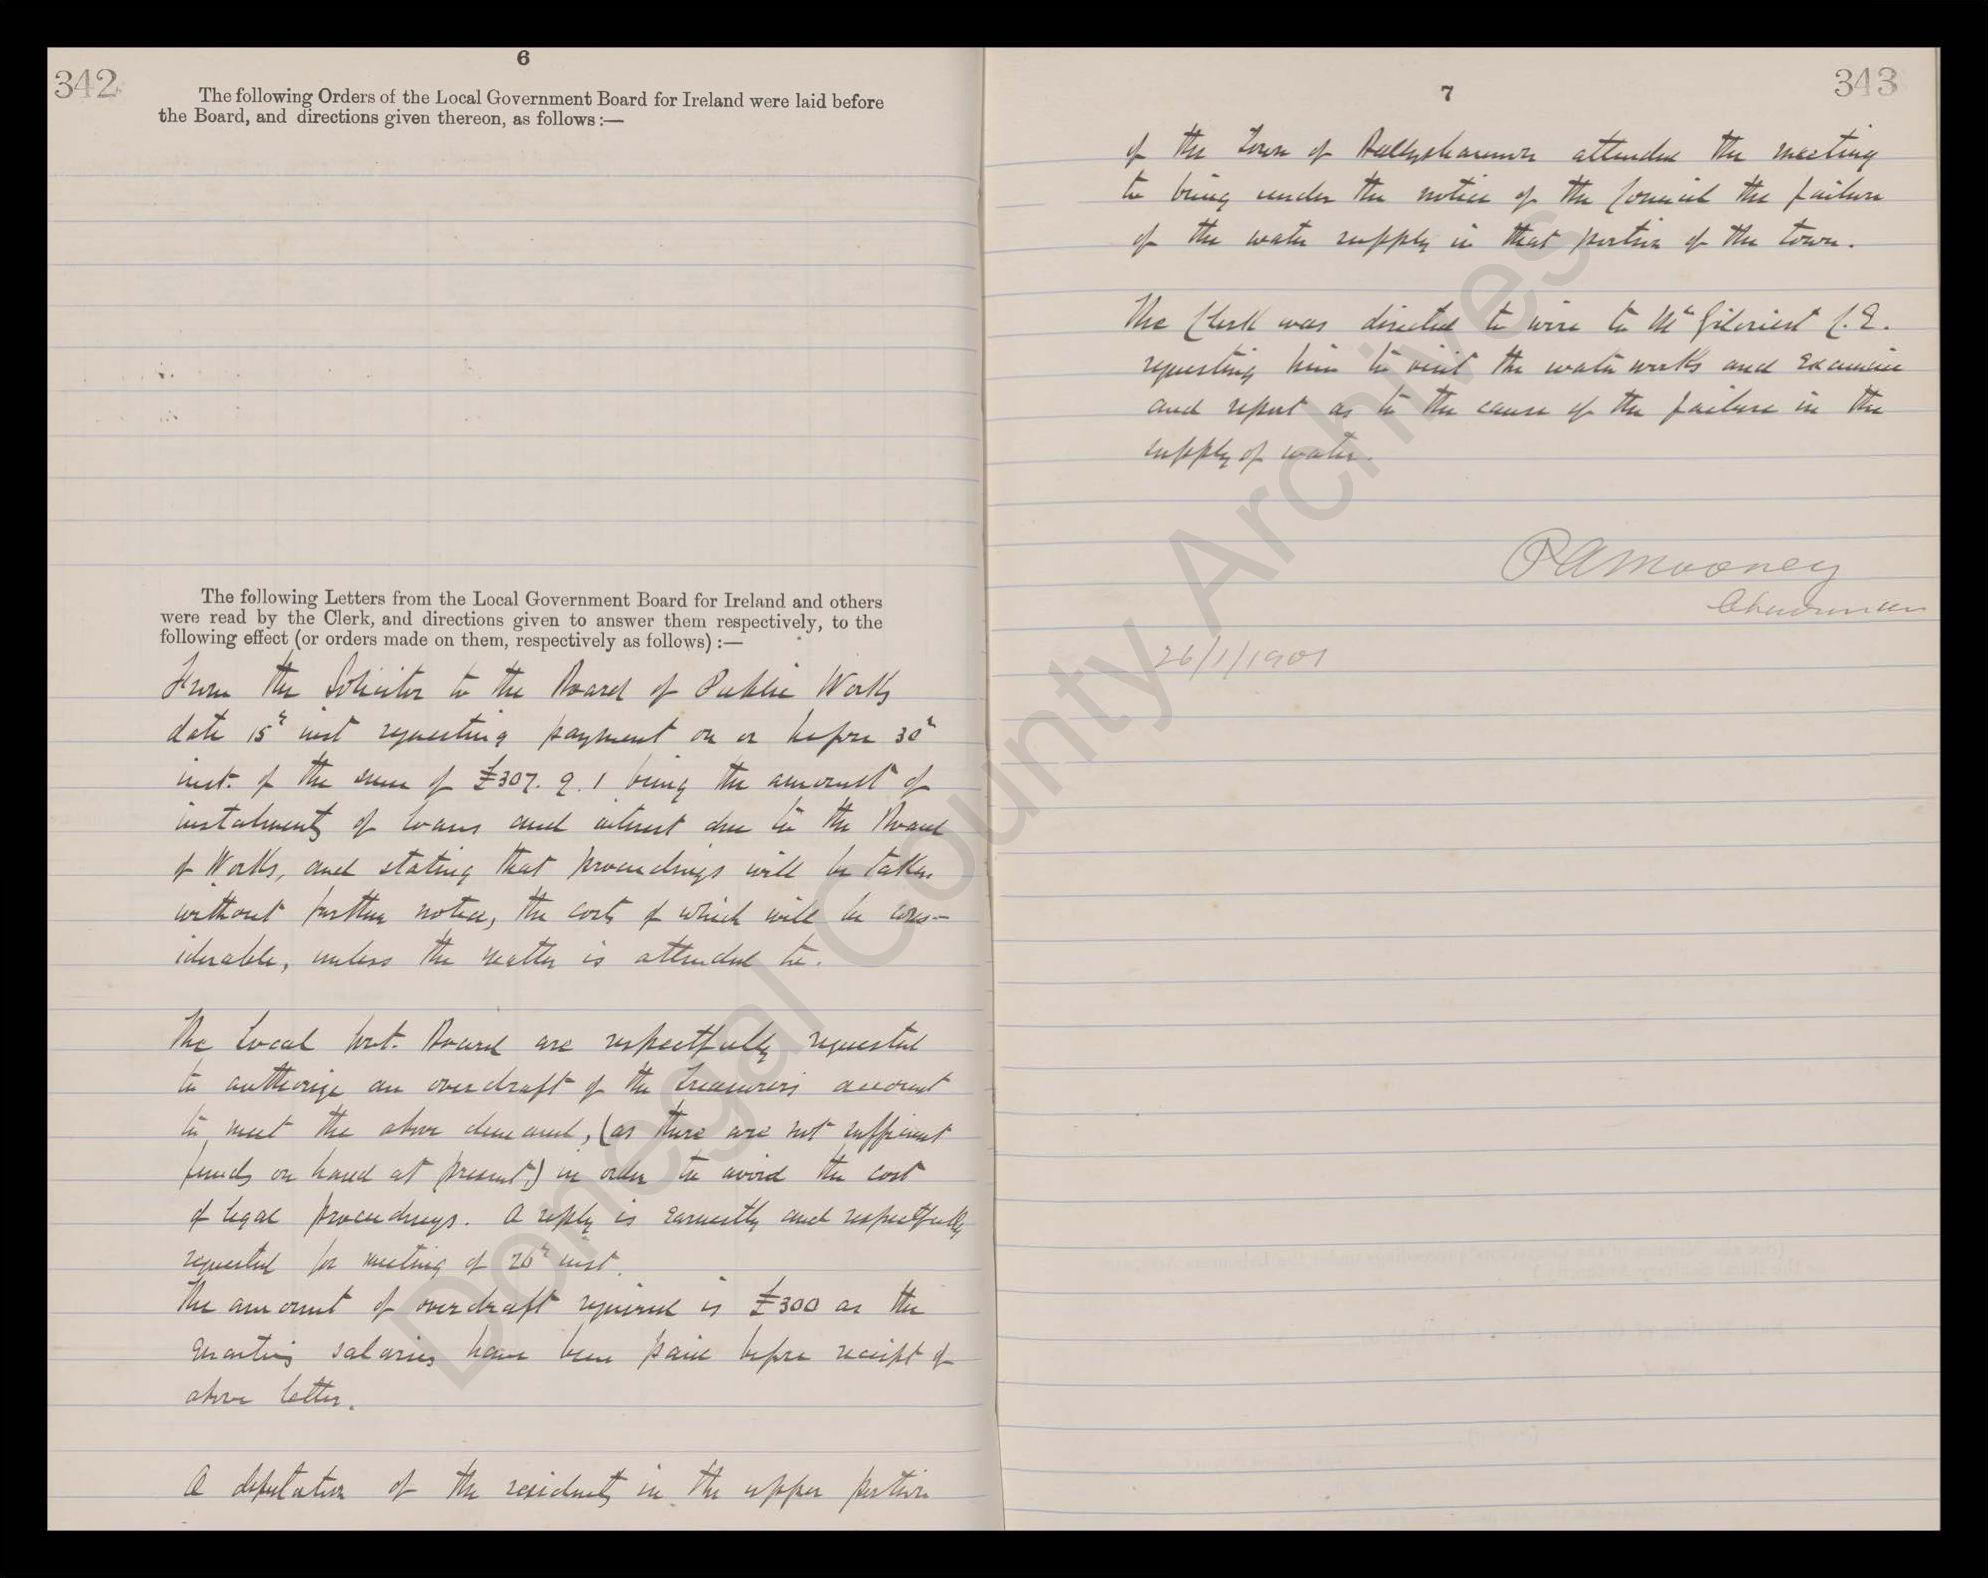 342
6
The following Orders of the Local Government Board for Ireland were laid before
the Board, and directions given thereon, as follows :—
The following Letters from the Local Government Board for Ireland and others
were read by the Clerk, and directions given to answer them respectively, to the
following effect (or orders made on them, respectively as follows) :—
From the Solicitor to the Board of Public Works
date 15th inst requesting payment on or before 30th
inst. of the sum of £307. 9. 1 being the amount of
instalments of loans and interest due to the Board
of Works, and stating that proceedings will be taken
without further notice, the costs of which will be cons-
iderable, unless the matter is attended to.
The Local Govt. Board are respectfully requested
to authorize an overdraft of the Treasurers account
to meet the above demand, (as there are not sufficient
funds on hand at present) in order to avoid the cost
of legal proceedings. A reply is earnestly and respectfully
requested for meeting of 26th inst.
The amount of overdraft required is £300 as the
Quarters salaries have been paid before receipt of
above letter.
A deputation of the residents in the upper portion
343
7
of the Town of Ballyshannon attended the meeting
to bring under the notice of the Council the failure
of the water supply in that portion of the town.
The Clerk was directed to wire to Mr Gilcriest C.E.
requesting him to visit the water works and Examine
and report as to the cause of the failure in the
supply of water.
P A Mooney
Chairman
26/1/1901
Donegal County Archives